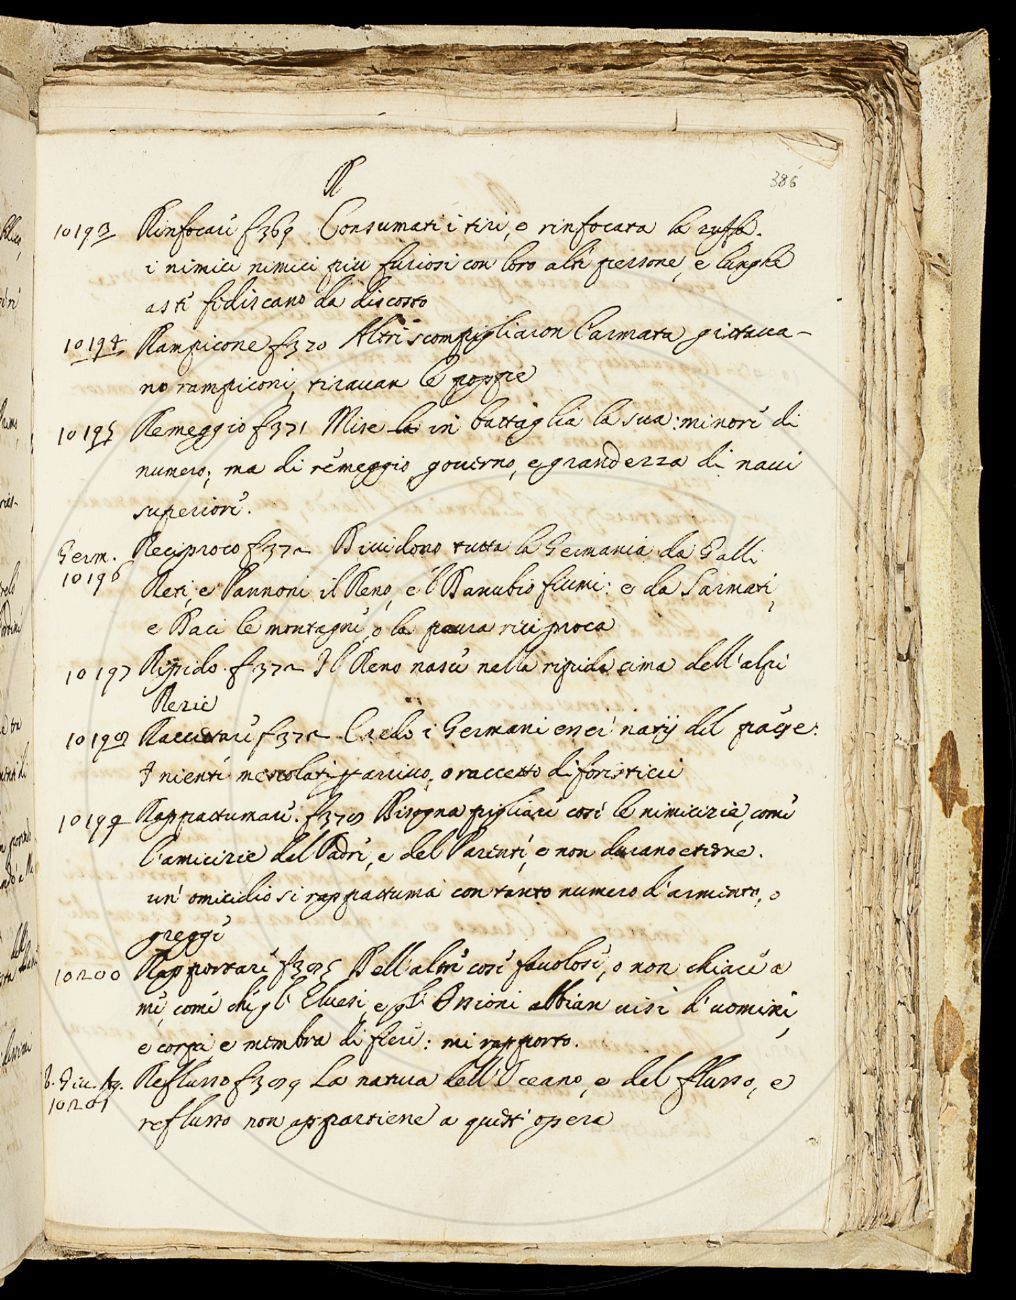 R
386
10193 Rinfocare f 369 Consumati i tiri, e rinfocata la zuffa.
i nimici nimici piu furiosi con loro alte persone, e lunghe
asti fediscano da discosto
10194 Rampicone f 370 Altri scompigliaron l'armata gittava-
no rampiconi, tiravan le poppe
10195 Remeggio f 371 Mise la in battaglia la sua: minore di
numero; ma di remeggio, governo, e grandezza di navi
superiore.
Germ. Reciproco f 372 Dividono tutta la Germania da Galli
10196 Reti, e Pannoni il Reno, e 'l Danubio fiumi: e da Sarmati,
e Daci le montagne, o la paura riciproca
10197 Ripido. f 372 Il Reno nasce nella ripida cima dell'alpi
Retie
10198 Raccettare f 372 Credo i Germani esser natij del paese:
Inienti mescolati per arrivo, o raccetto di foristieri
10199 Rappattumare. f 378 Bisogna pigliare cosi le nimicizie, come
l'amicizie del Padre, e del Parenti, e non durano eterne.
un' omicidio si rappattuma con tanto numero d'armento, o
greggi
10200 Rapportare f 385 Dell'altre cose favolose, o non chiare a
me, come che gl' Elusi, e gl' Ossioni abbian visi d'uomini,
e corpi, e membra di fiere: mi rapporto.
Reflusso f 389 La natura dell'Oceano, e del flusso, e
10201 reflusso non appartiene a quest' opera